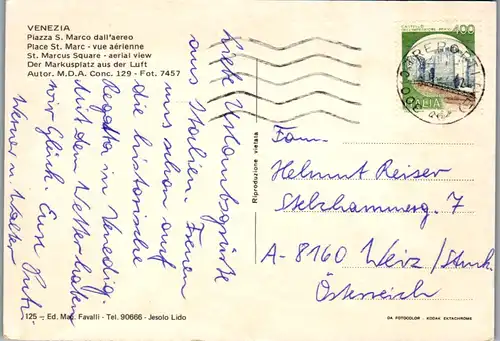 VENEZIA
Piazza S. Marco dall'aereo
Place St. Marc - vue aérienne
St. Marcus Square - aerial view
Der Markusplatz aus der Luft
Autor. M.D.A. Conc. 129 - Fot. 7457
Liebe Urlaubsgrüße
aus Italien. Freuen
uns schon auf
die historische
Regatta in Venedig.
Mit dem Wetter haben
wir Glück. Eure
Werner u. Walter
Riproduzione vietata
400
ITALIA
Fam.
Helmut Reiser
Stelzhammerg. 7
A-8160 Weiz/Stmk.
Österreich
125 - Ed. Mac. Favalli - Tel. 90666 - Jesolo Lido
DA FOTOCOLOR - KODAK EKTACHROME